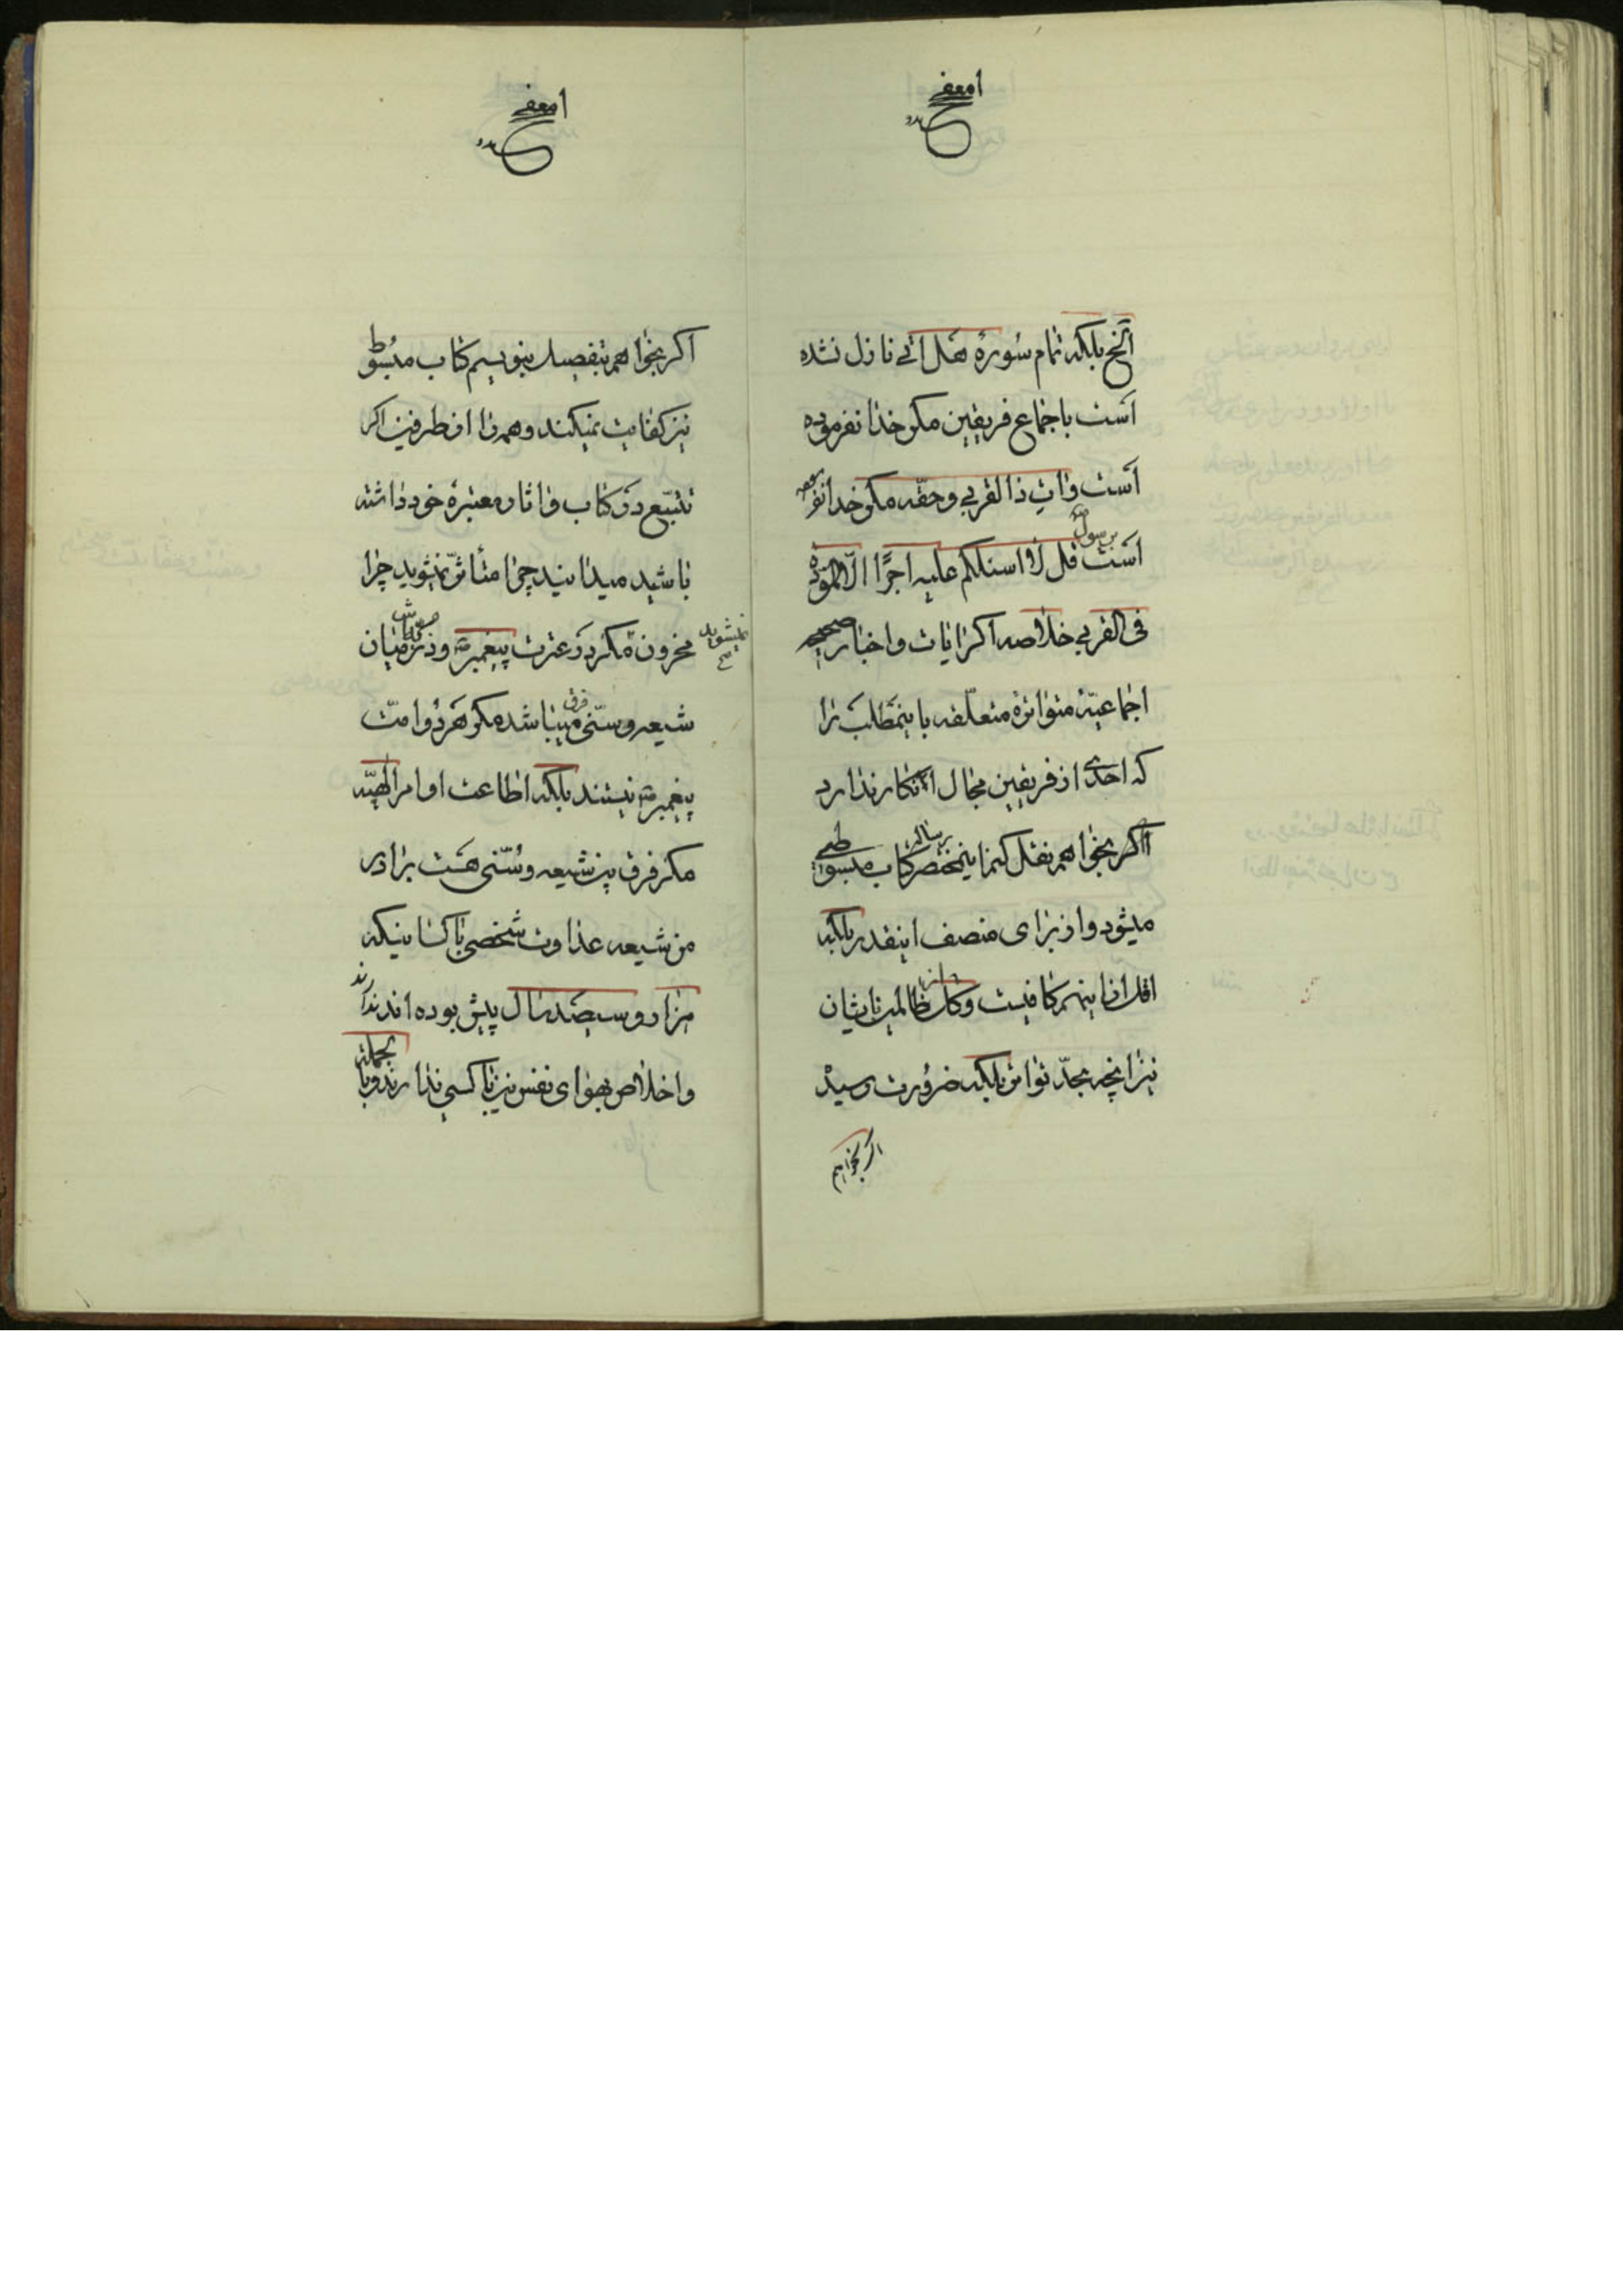 الخ بلکه تمام سورهٔ هل اتی نازل نشده
است باجماع فریقین مکر خدا نفرموده
است وات ذا القربی وحقه مکر خدا نفرموده
برسول
است قل لا اسئلکم علیه اجرًا الّا المودّة
فی القربی خلاصه اکر ایات و اخبار صحیحه
اجماعیّهٔ متواترهٔ متعلّقه باینمطلب را
که احدی از فریقین مجال انکار ندارد
اکر بخواهم نقل کنم این مختصر رساله کتاب مبسوطی
میشود و از برای منصف اینقدر بلکه
اقل از اینهم کافیست و کل ظالمین بایشان
نیز انچه بحدّ تواتر بلکه ضرورت رسیده
اکر بخواهم
اکر بخواهم بتفصیل بنویسم کتاب مبسوط
نیز کفایت نمیکند و همه را از طرفین اکر
تتبّع در کتاب و اثار معتبرهٔ خود داشته
باشید میدانید چرا متأثر نمیشوید چرا
محزون نمیشوید مکر در عترت پیغمبر ص و ذریّه میان
شیعه و سنّی فرق میباشد مکر هر دو امّت
پیغمبر ص نیستند بلکه اطاعت اوامر الهیّه
مکر فرق بین شیعه و سُنّی هست برادر
من شیعه عداوت شخصی با کسانیکه
هزار و سیصد سال پیش بوده اند ندارند
و اخلاص بهوای نفس نیز با کسی ندارند و بالجمله